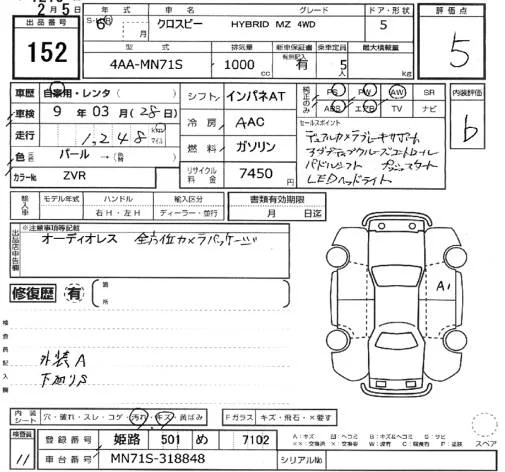 2月5日
出品番号 152
年式 6年 月 車名 クロスビー グレード HYBRID MZ 4WD ドア・形状 5
型式 4AA-MN71S 排気量 1000cc 新車保証書 有 乗車定員 5人 最大積載量 kg
評価点 5
車歴 自家用・レンタ(
車検 9年03月(28日)
走行 1,248
色 パール →(
カラーNo. ZVR
シフト インパネAT
冷房 AAC
燃料 ガソリン
リサイクル料金 7450円
PS PW AW SR
ABS エアB TV ナビ
セールスポイント
デュアルカメラブレーキサポート
アダプティブクルーズコントロール
パドルシフト プッシュスタート
LEDヘッドライト
内装評価 b
輸入車 モデル年式 ハンドル 右H・左H 輸入区分 ディーラー・並行
書類有効期限 月 日迄
出品店申告欄 ※注意事項等記載
オーディオレス 全方位カメラパッケージ
修復歴 有 箇所
A1
検査員記入欄
外装A
下廻りS
内装シート 穴・破れ・スレ・コゲ・汚れ・キズ・黄ばみ Fガラス キズ・飛石・×要す
検査員 11
登録番号 姫路 501 め 7102
車台番号 MN71S-318848 シリアルNo.
A:キズ
スペア